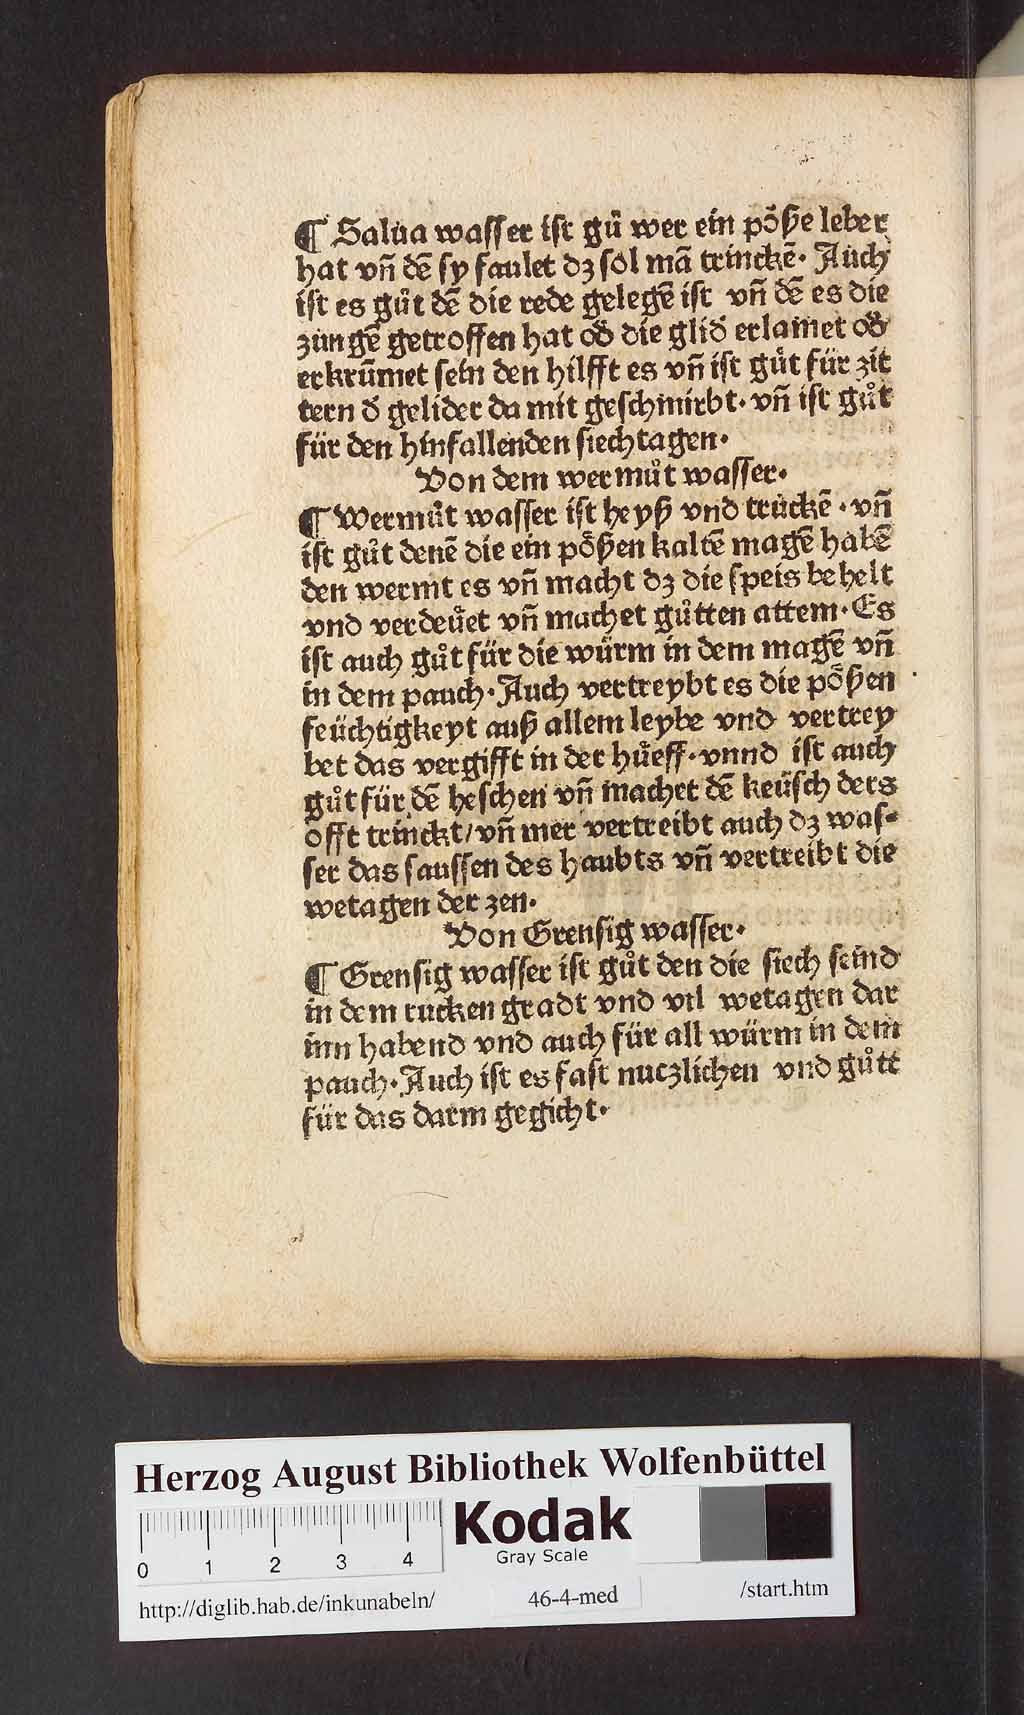 ¶ Salua wasser ist gů wer ein pöße leber
hat vñ dē sy faulet dz sol mā trinckē. Auch
ist es gůt dē die rede gelegē ist vñ dē es die
zungē getroffen hat oď die gliď erlamet oď
erkrūmet sein den hilfft es vñ ist gůt für zit
tern ď gelider da mit geschmirbt. vñ ist gůt
für den hinfallenden siechtagen.
Von dem wermůt wasser.
¶ Wermůt wasser ist heyß vnd truckē . vñ
ist gůt denē die ein pößen kaltē magē habē
den wermt es vñ macht dz die speis behelt
vnd verdeůet vñ machet gůtten attem. Es
ist auch gůt für die würm in dem magē vñ
in dem pauch. Auch vertreybt es die pößen
feüchtigkeyt auß allem leybe vnd vertrey
bet das vergifft in der hůeff. vnnd ist auch
gůt für dē heschen vñ machet dē keüsch ders
offt trinckt/ vñ mer vertreibt auch dz was⸗
ser das saussen des haubts vñ vertreibt die
wetagen der zen.
Von Grensig wasser.
¶ Grensig wasser ist gůt den die siech seind
in dem rucken gradt vnd vil wetagen dar
inn habend vnd auch für all würm in dem
pauch. Auch ist es fast nuczlichen vnd gůtt
für das darm gegicht.
Herzog August Bibliothek Wolfenbüttel
0 1 2 3 4
Kodak
Gray Scale
http://diglib.hab.de/inkunabeln/ 46-4-med /start.htm